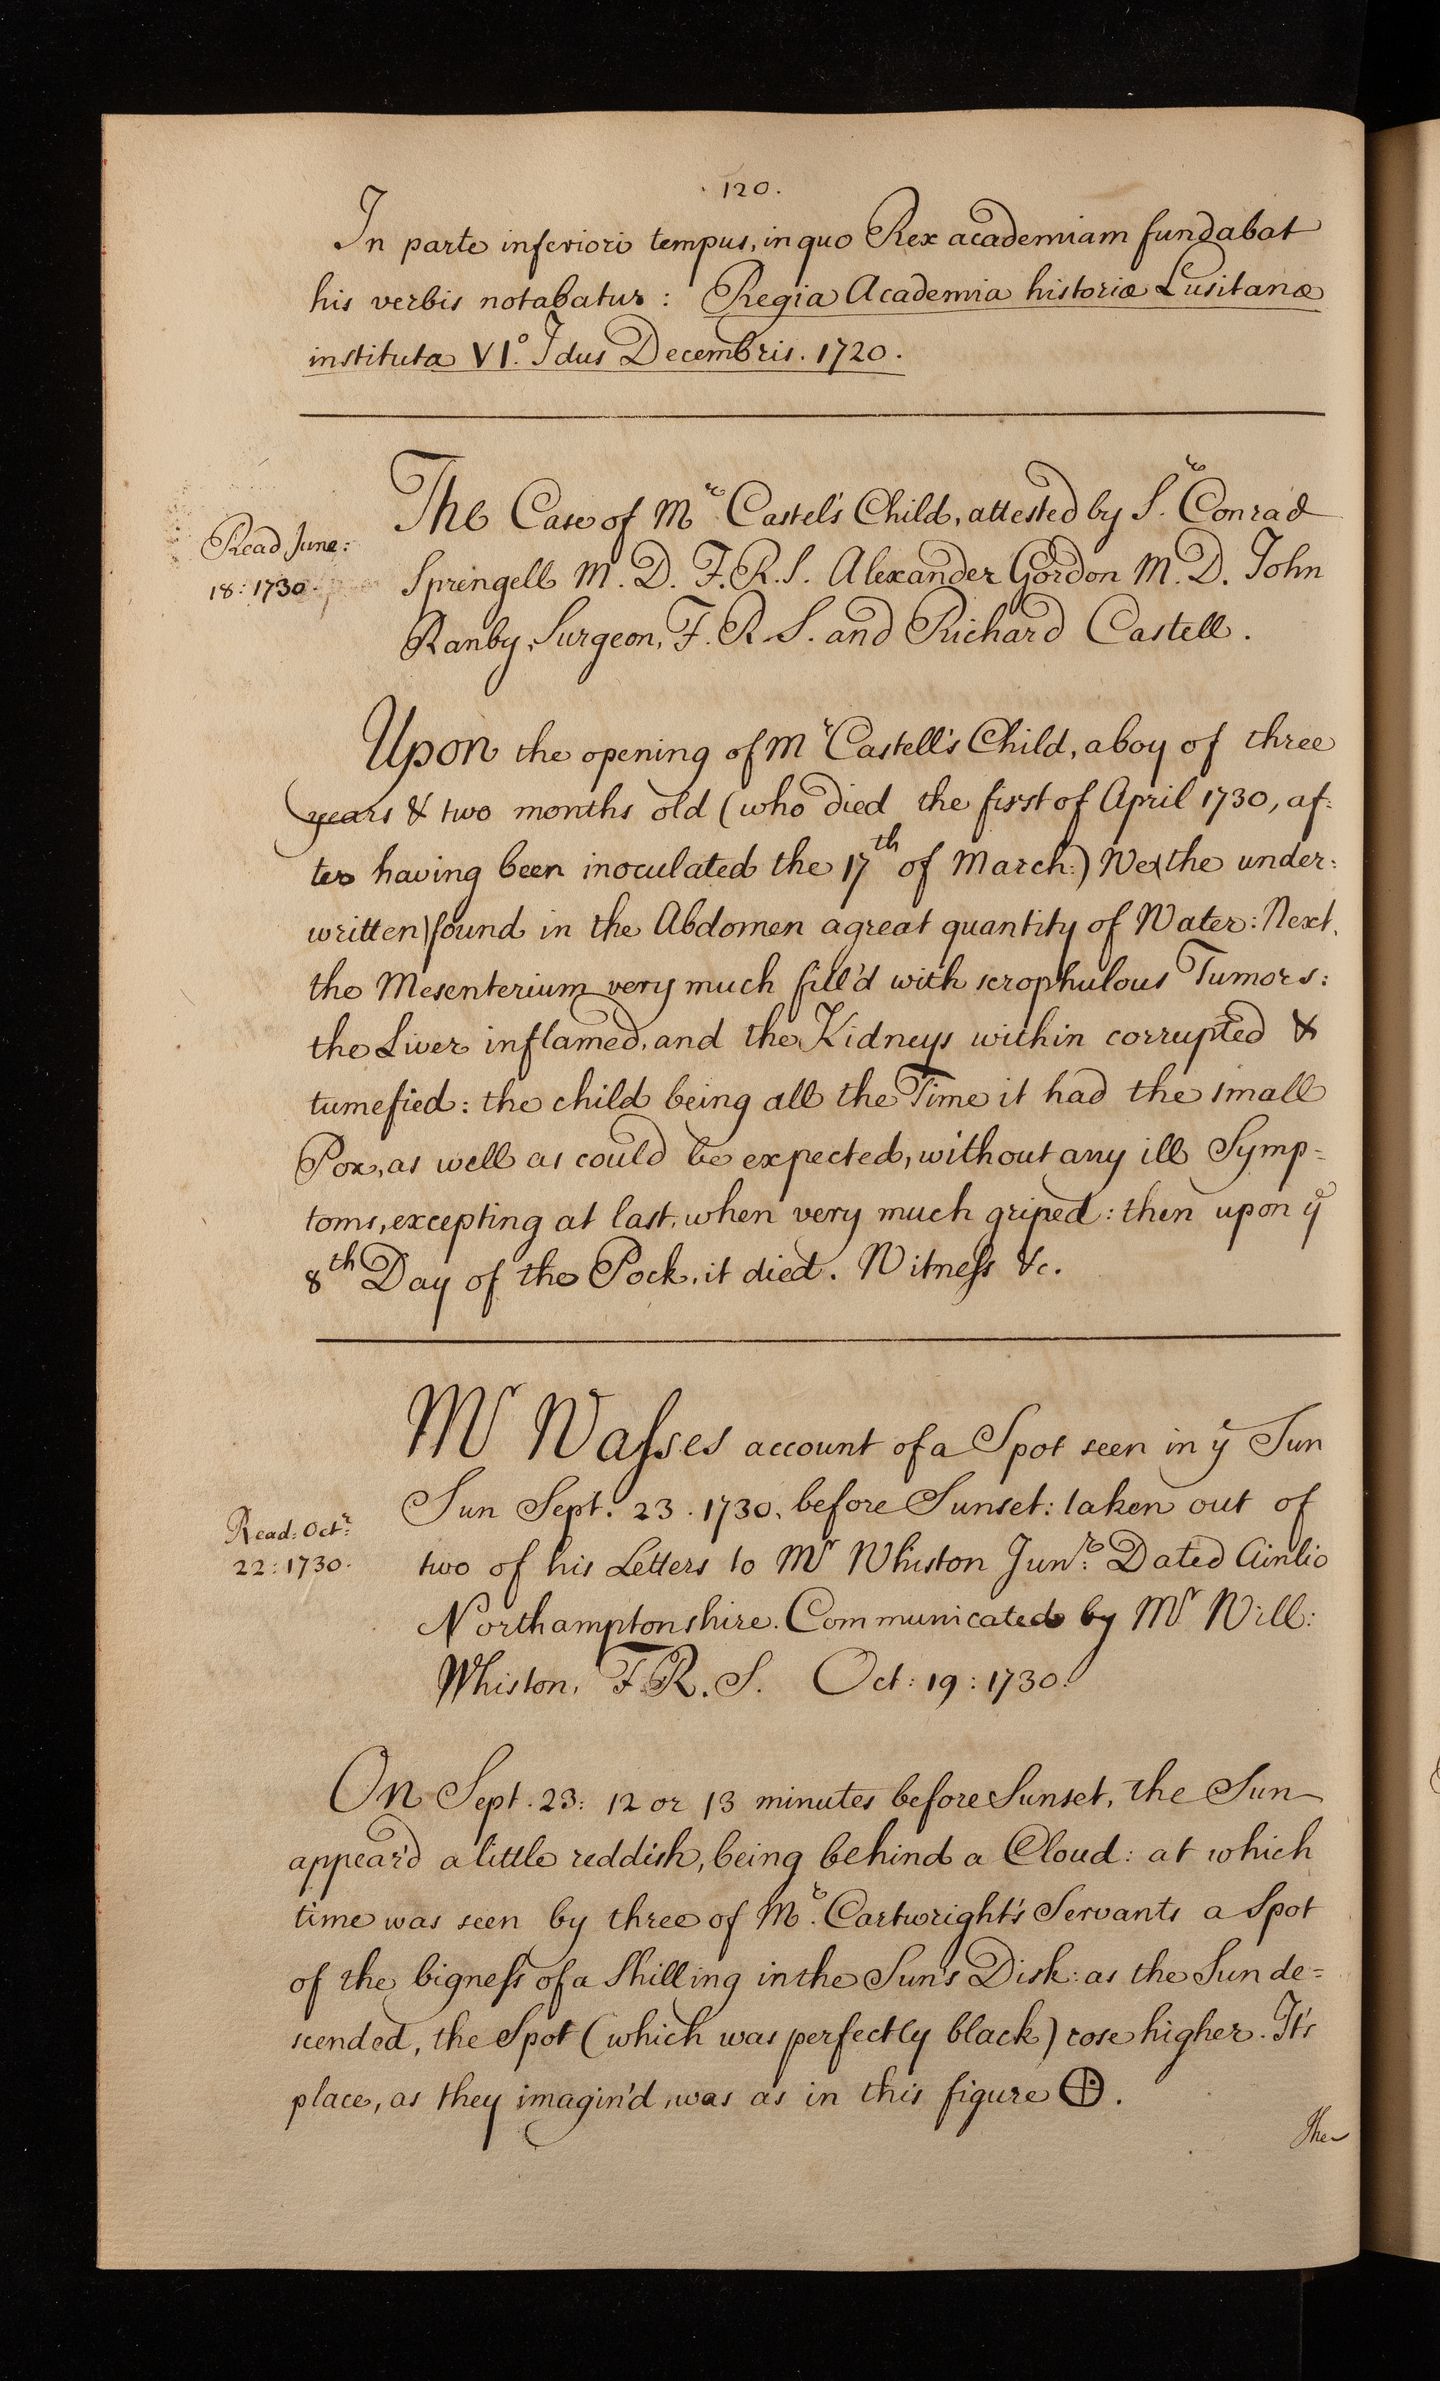 . 120.
In parte inferiori tempus, in quo Rex academiam fundabat
his verbis notabatur : Regia Academia historiæ Lusitanæ
instituta VI.º Idus Decembris. 1720.
The Case of Mr Castel's Child, attested by S.r Conrad
Read June:
18: 1730.
Springell M. D. F. R. S. Alexander Gordon M. D. John
Ranby, Surgeon, F. R. S. and Richard Castell.
Upon the opening of Mr Castell's Child, a boy of three
years & two months old (who died the first of April 1730, af:
ter having been inoculated the 17th of March:) We (the under:
written) found in the Abdomen a great quantity of Water: Next,
the Mesenterium very much fill'd with scrophulous Tumors:
the Liver inflamed, and the Kidneys within corrupted &
tumefied: the child being all the Time it had the small
Pox, as well as could be expected, without any ill Symp=
toms, excepting at last, when very much griped: then upon ye
8th Day of the Pock, it died. Witneſs &c.
Mr Waſses account of a Spot seen in ye Sun
Sun Sept. 23. 1730, before Sunset: taken out of
Read: Octr:
22: 1730.
two of his Letters to Mr Whiston Junr: Dated Ainlio
Northamptonshire. Communicated by Mr Will:
Whiston, F. R. S. Oct: 19: 1730.
On Sept. 23: 12 or 13 minutes before Sunset, the Sun
appear'd a little reddish, being behind a Cloud: at which
time was seen by three of Mr. Cartwright's Servants a Spot
of the bigneſs of a Shilling in the Sun's Disk: as the Sun de=
scended, the Spot (which was perfectly black) rose higher. It's
place, as they imagin'd, was as in this figure ⊕.
The